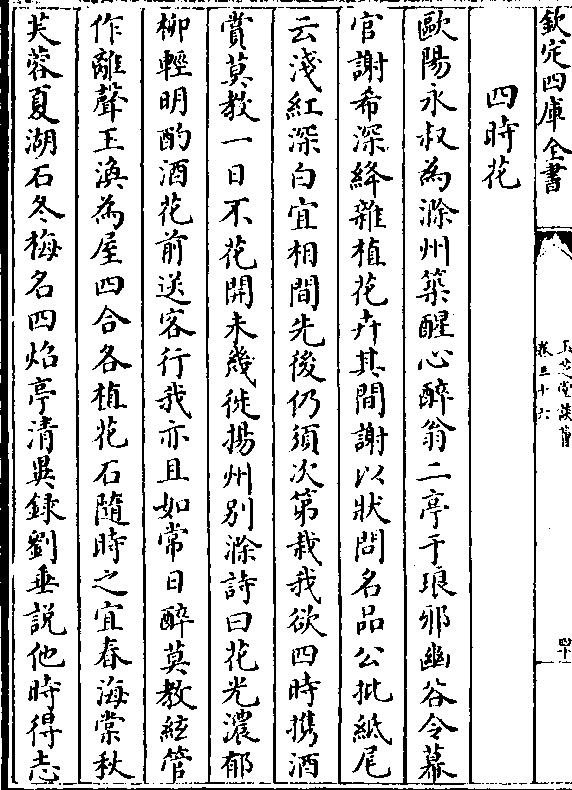 欽定四庫全書
玉芝堂談薈
卷三十六
四十
四時花
歐陽永叔為滁州築醒心醉翁二亭于琅邪幽谷令幕
官謝希深絳雜植花卉其間謝以狀問名品公批紙尾
云淺紅深白宜相間先後仍須次第栽我欲四時携酒
賞莫教一日不花開未幾徙揚州别滁詩曰花光濃郁
柳輕明酌酒花前送客行我亦且如常日醉莫教絃管
作離聲王渙為屋四合各植花石隨時之宜春海棠秋
芙蓉夏湖石冬梅名四㷔亭清異録劉垂説他時得志